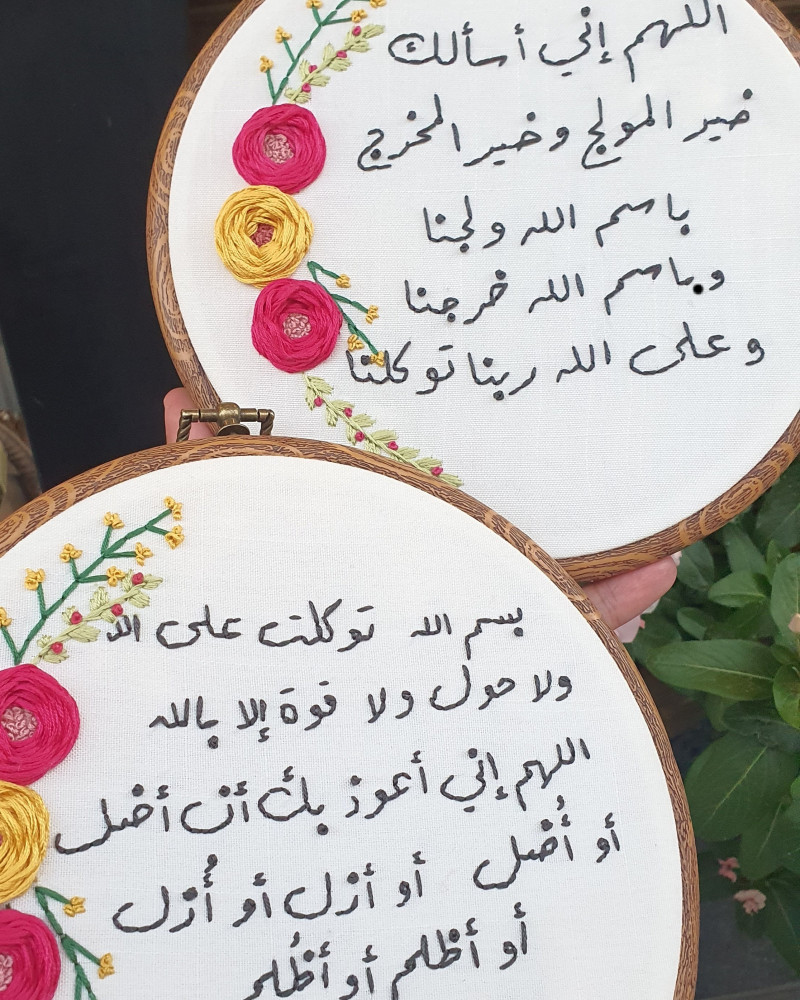 اللهم إني أسألك
خير المولج وخير المخرج
باسم الله ولجنا
وباسم الله خرجنا
وعلى الله ربنا توكلنا
بسم الله توكلت على الله
ولا حول ولا قوة إلا بالله
اللهم إني أعوذ بك أن أضل
أو أُضل أو أزل أو أُزل
أو أظلم أو أُظلم